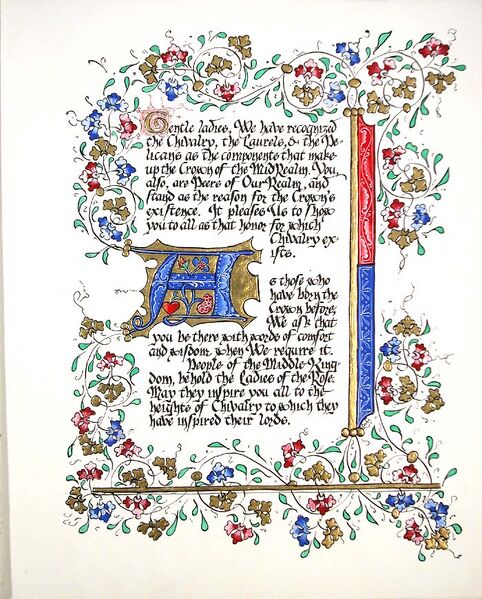 Gentle ladies, We have recognized
the Chivalry, the Laurels, & the Pe-
licans as the components that make
up the Crown of the MidRealm. You,
also, are Peers of Our Realm, and
stand as the reason for the Crown's
existence. It pleases Us to show
you to all as that honor for which
Chivalry ex-
ists.
As those who
have born the
Crown before,
We ask that
you be there with words of comfort
and wisdom when We require it.
People of the Middle King-
dom, behold the Ladies of the Rose.
May they inspire you all to the
heights of Chivalry to which they
have inspired their lords.